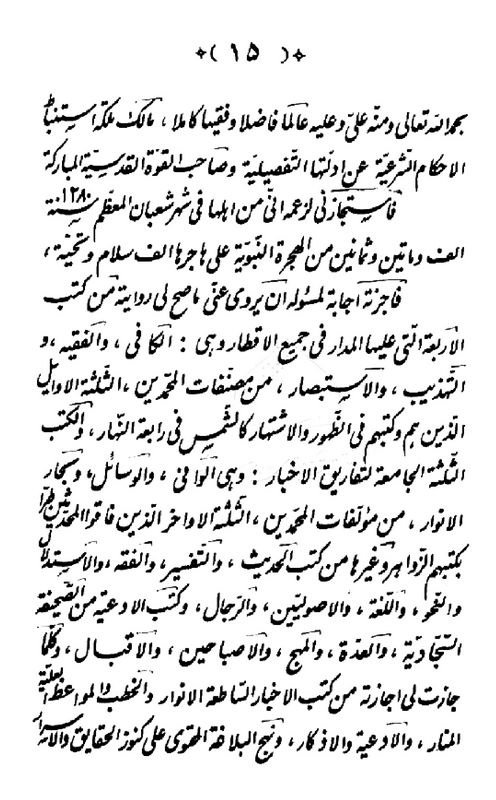 ( ١٥ )
بحمد الله تعالى ومنّه عليّ وعليه عالماً فاضلا وفقيها كاملا ، مالك ملكة استنباط
الاحكام الشرعيّة عن ادلّتها التّفصيليّة وصاحب القوّة القدسيّة المباركة
فاستجازني لزعمه انّي من اهلها في شهر شعبان المعظّم سنة ١٢٨٠
الف وماتين وثمانين من الهجرة النّبويّة على هاجرها الف سلام وتحيّة ،
فاجزته اجابة لمسئوله ان يروى عنّي ماصح لي روايته من كتب
الاربعة الّتي عليها المدار في جميع الاقطار وهي : الكافي ، والفقيه ، و
التّهذيب ، والاستبصار ، من مصنّفات المحمّدين ، الثّلثة الاوايل
الّذين هم وكتبهم في الظّهور والاشتهار كالشّمس في رابعة النّهار ، والكتب
الثّلثة الجامعة لتفاريق الاخبار : وهي الوافي ، والوسائل ، وبحار
الانوار ، من مؤلّفات المحمّدين ، الثّلثة الاواخر الّذين فاقوا المحدّثين طرّا
بكتبهم الزّواهر وغيرها من كتب الحديث ، والتّفسير ، والفقه ، والاستدلال
والنّحو ، واللّغة ، والاصوليين ، والرّجال ، وكتب الادعية من الصّحيفة
السّجّاديّة ، والعدّة ، والمهج ، والاصباحين ، والاقبال ، وكلّما
جازت لي اجازته من كتب الاخبار السّاطعة الانوار والخطب والمواعظ العليّة
المنار ، والادعية والاذكار ، ونهج البلاغة المحتوى على كنوز الحقايق والاسرار